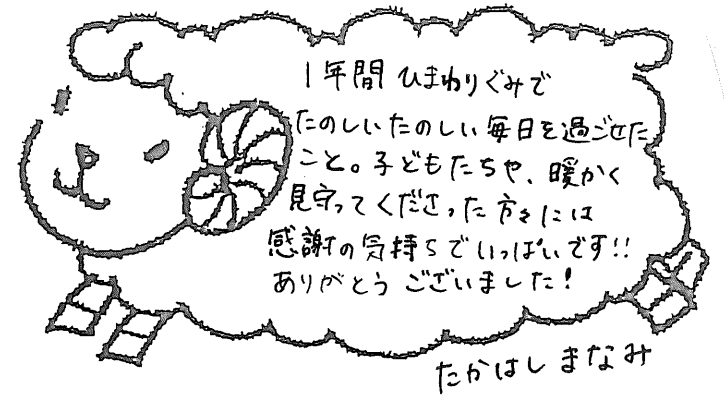 1年間 ひまわりぐみで
たのしいたのしい毎日を過ごせた
こと。子どもたちや、暖かく
見守ってくださった方々には
感謝の気持ちでいっぱいです!!
ありがとうございました!
たかはし まなみ